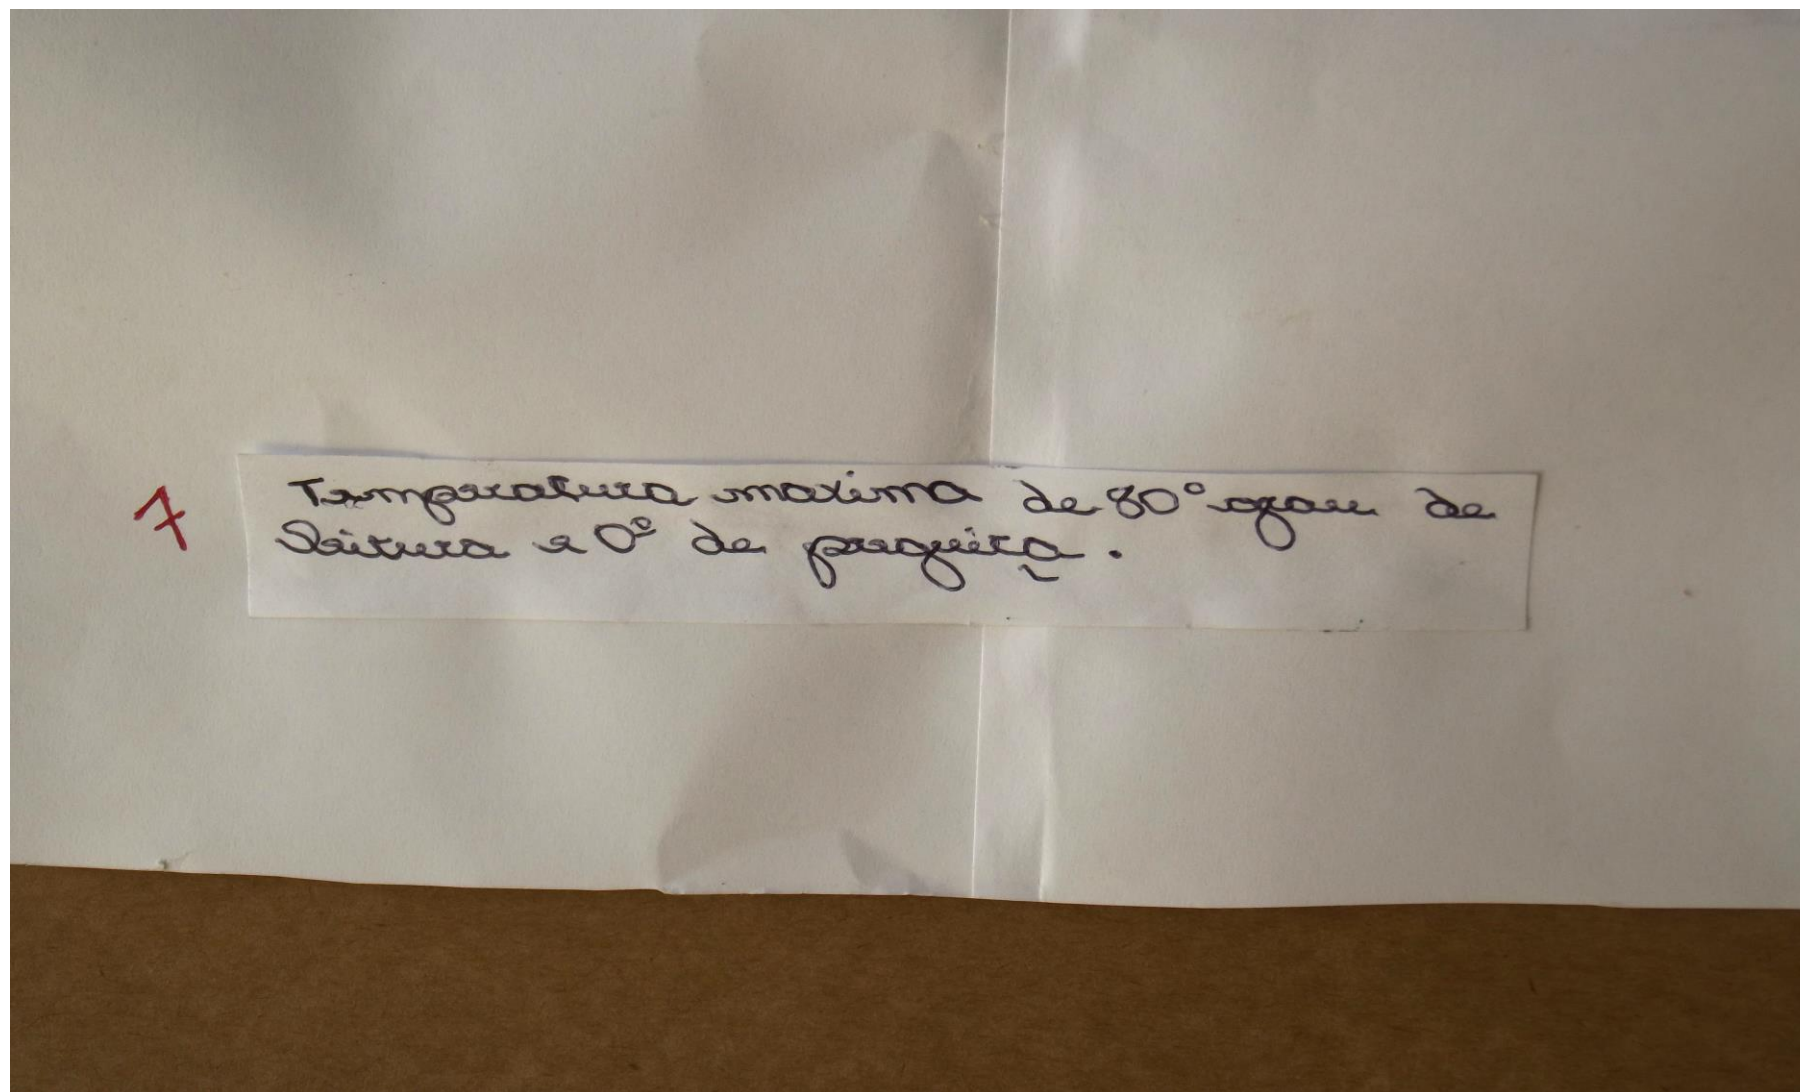 7
Temperatura maxima de 80° grau de
leitura e 0° de preguiça.